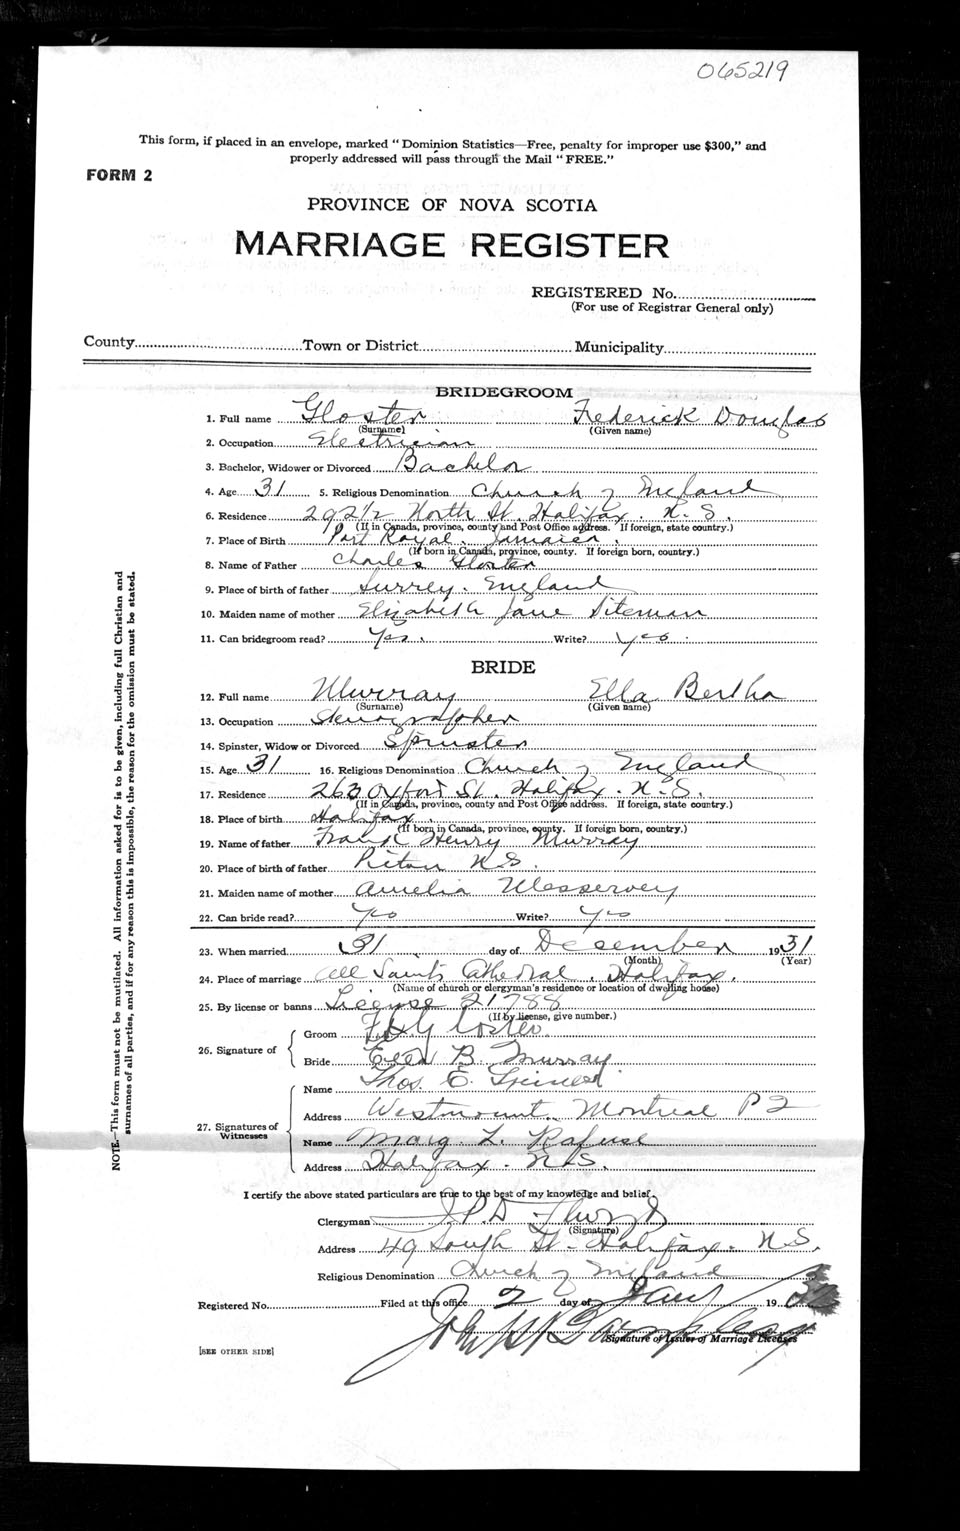 065219
This form, if placed in an envelope, marked "Dominion Statistics—Free, penalty for improper use $300," and
properly addressed will pass through the Mail "FREE."
FORM 2
PROVINCE OF NOVA SCOTIA
MARRIAGE REGISTER
REGISTERED No.
(For use of Registrar General only)
County Town or District Municipality
BRIDEGROOM
1. Full name Gloster Frederick Douglas
(Surname) (Given name)
2. Occupation Electrician
3. Bachelor, Widower or Divorced Bachelor
4. Age 31 5. Religious Denomination Church of England
6. Residence 292 1/2 North St. Halifax. N.S.
(If in Canada, province, county and Post Office address. If foreign, state country.)
7. Place of Birth Port Royal. Jamaica.
(If born in Canada, province, county. If foreign born, country.)
8. Name of Father Charles Gloster
9. Place of birth of father Surrey. England
10. Maiden name of mother Elizabeth Jane
11. Can bridegroom read? Yes. Write? yes
BRIDE
12. Full name Murray Ella Bertha
(Surname) (Given name)
13. Occupation Stenographer
14. Spinster, Widow or Divorced Spinster
15. Age 31 16. Religious Denomination Church of England
17. Residence 263 Oxford St. Halifax. N.S.
(If in Canada, province, county and Post Office address. If foreign, state country.)
18. Place of birth Halifax.
(If born in Canada, province, county. If foreign born, country.)
19. Name of father Frank Henry Murray
20. Place of birth of father Pictou N.S.
21. Maiden name of mother Amelia Messervey
22. Can bride read? Yes Write? Yes
23. When married 31 day of December 1931
(Month) (Year)
24. Place of marriage All Saints Cathedral. Halifax.
(Name of church or clergyman's residence or location of dwelling house)
25. By license or banns License 21788
(If by license, give number.)
26. Signature of Groom F. D. Gloster
Bride Ella B. Murray
27. Signatures of Witnesses
Name Thos. E.
Address Westmount. Montreal P Q
Name Marg. L. Rafuse
Address Halifax. N.S.
I certify the above stated particulars are true to the best of my knowledge and belief.
Clergyman
(Signature)
Address 49 South St. Halifax. N.S.
Religious Denomination Church of England
Registered No. Filed at this office 2 day of Jany 19
Signature of Issuer of Marriage Licenses
[SEE OTHER SIDE]
NOTE.—This form must not be mutilated. All information asked for is to be given, including full Christian and
surnames of all parties, and if for any reason this is impossible, the reason for the omission must be stated.